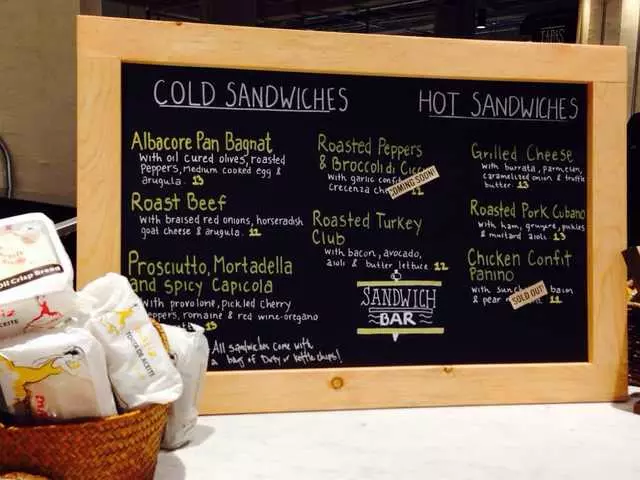 COLD SANDWICHES
Albacore Pan Bagnat
with oil cured olives, roasted
peppers, medium cooked egg &
arugula. 13
Roast Beef
with braised red onions, horseradish
goat cheese & arugula. 12
Prosciutto, Mortadella
and spicy Capicola
with provolone, pickled cherry
peppers, romaine & red wine-oregano
13
All sandwiches come with
a bag of Dirty or kettle chips!
Roasted Peppers
& Broccoli di
with garlic
Crescenza
COMING SOON!
Roasted Turkey
Club
with bacon, avocado,
aioli & butter lettuce 12
SANDWICH
BAR
HOT SANDWICHES
Grilled Cheese
with burrata, parmesan,
caramelized onion & truffle
butter. 13
Roasted Pork Cubano
with ham, gruyere, pickles
& mustard aioli 13
Chicken Confit
Panino
with bacon
& pear
SOLD OUT!
11
Oil Crisp Bread